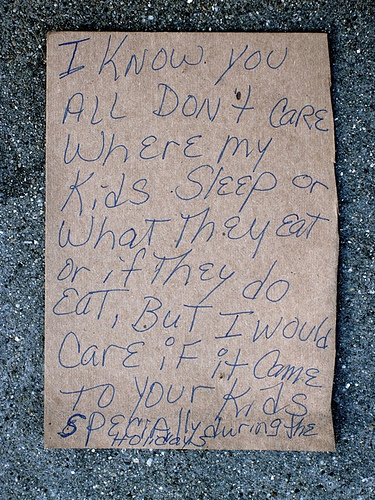 I KNOW YOU
ALL DON't CARE
WHERE my
Kids SLEEP or
WHAT THEy Eat
or if THEy do
EAT, BUT I WOULD
CARE iF it CAME
TO YOUR Kids
SPECIAlly during the
Holidays